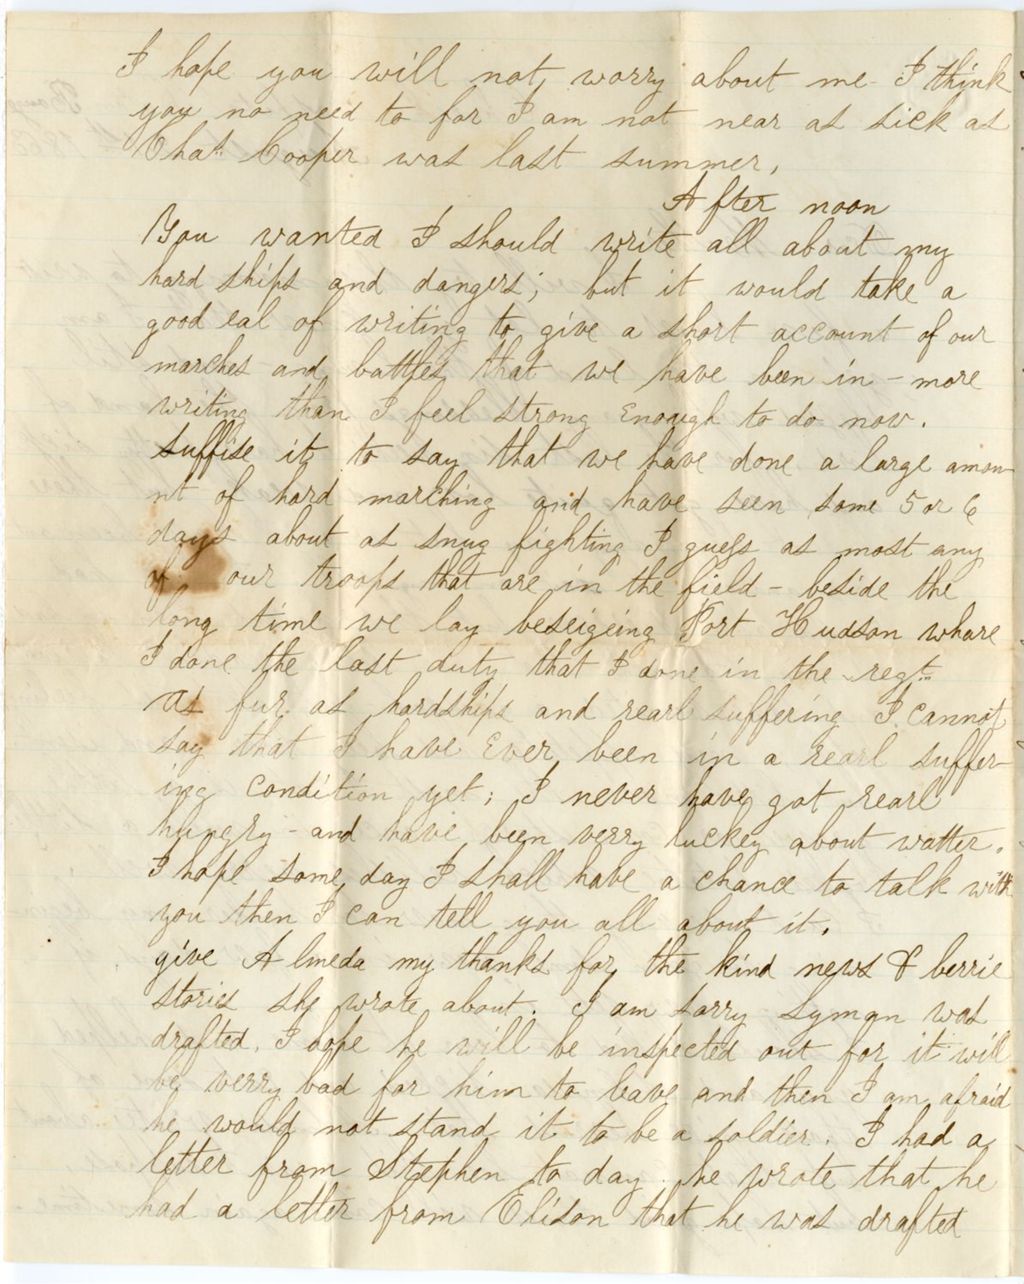 I hope you will not worry about me - I think
you no need to for I am not near as sick as
Chas. Cooper was last summer,
After noon
You wanted I should write all about my
hard ships and dangers; but it would take a
good eal of writing to give a short account of our
marches and battles that we have been in - more
writing than I feel strong Enough to do now.
Suffise it to say that we have done a large amou-
nt of hard marching and have seen some 5 or 6
days about as snug fighting I guess as most any
of our troops that are in the field - beside the
long time we lay beseigeing Port Hudson whare
I done the last duty that I done in the regt.
As fur as hardships and rearl suffering I cannot
say that I have Ever been in a rearl suffer-
ing condition yet; I never have got rearl
hungry - and have been verry luckey about watter.
I hope some day I shall have a chance to talk with
you then I can tell you all about it.
give Almeda my thanks for the kind news & berrie
stories she wrote about. I am sorry Lyman was
drafted. I hope he will be inspected out for it will
be verry bad for him to leave and then I am afraid
he would not stand it to be a soldier. I had a
letter from Stephen to day. he wrote that he
had a letter from Elison that he was drafted